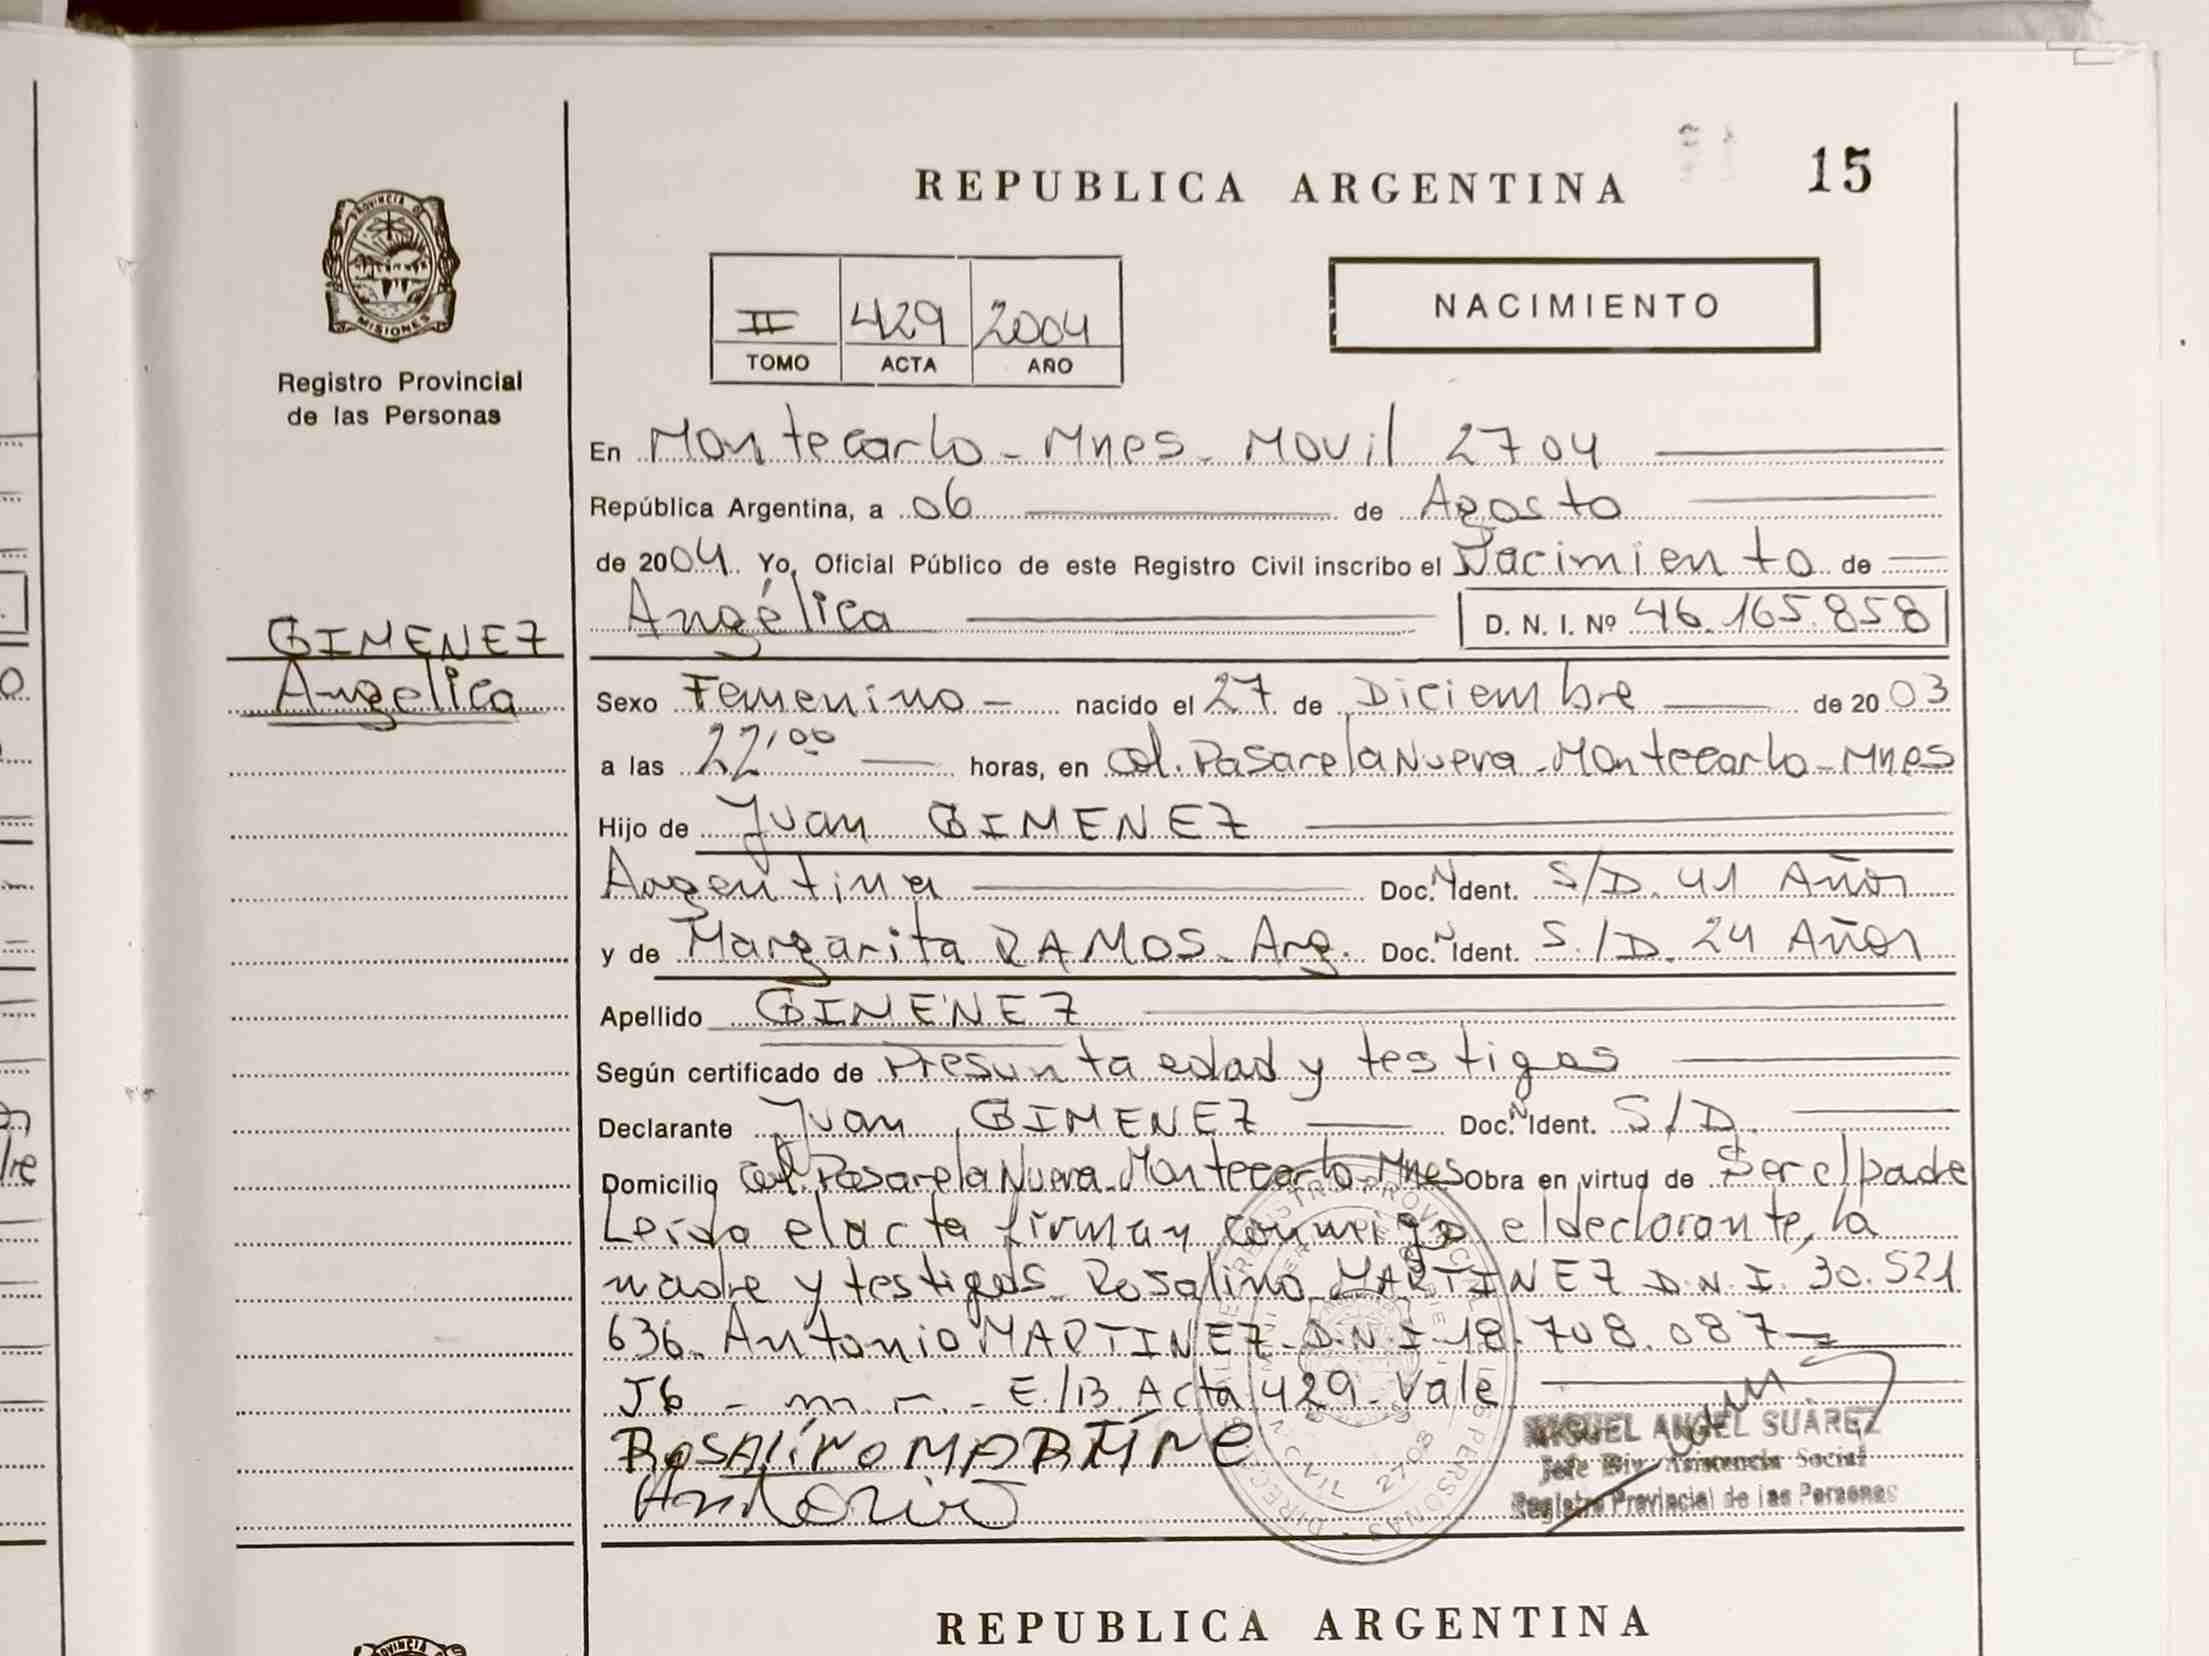 REPUBLICA ARGENTINA
15
PROVINCIA DE
MISIONES
Registro Provincial
de las Personas
II 429 2004
TOMO ACTA AÑO
NACIMIENTO
En Montecarlo - Mnes - Movil 2704
República Argentina, a 06 de Agosto
de 2004. Yo, Oficial Público de este Registro Civil inscribo el Nacimiento de
Angélica D. N. I. Nº 46.165.858
GIMENEZ
Angelica
Sexo Femenino - nacido el 27 de Diciembre de 2003
a las 22,00 horas, en Col. Pasarela Nueva - Montecarlo - Mnes
Hijo de Juan GIMENEZ
Argentina Doc. N Ident. S/D. 41 Años
y de Margarita RAMOS - Arg. Doc. N Ident. S./D. 24 Años
Apellido GIMENEZ
Según certificado de Presunta edad y testigos
Declarante Juan GIMENEZ Doc. N Ident. S/D.
Domicilio Col. Pasarela Nueva - Montecarlo - Mnes Obra en virtud de Ser el padre
Leida el acta firman conmigo el declarante, la
madre y testigos Rosalino MARTINEZ D.N.I. 30.521
636. Antonio MARTINEZ D.N.I 18.708.087
E./B. Acta 429 - Vale
ROSALINO MARTINE
Antonio
MIGUEL ANGEL SUAREZ
Jefe Div. Asistencia Social
Registro Provincial de las Personas
REPUBLICA ARGENTINA
PROVINCIA